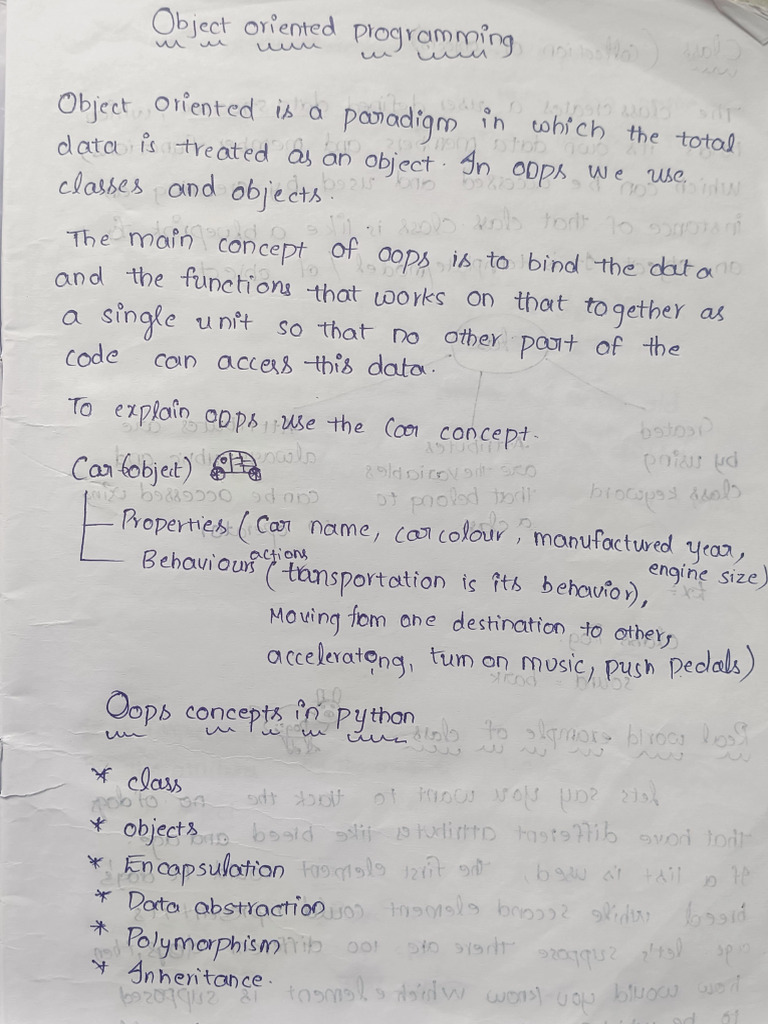 Object oriented programming
Object oriented is a paradigm in which the total
data is treated as an object. In OOPs we use
classes and objects.
The main concept of oops is to bind the data
and the functions that works on that together as
a single unit so that no other part of the
code can access this data.
To explain OOPs use the Car concept.
Car (object)
Properties (Car name, car colour, manufactured year,
engine size)
Behaviours actions (transportation is its behavior),
Moving from one destination to others,
accelerating, turn on music, push pedals)
Oops concepts in python
* class
* objects
* Encapsulation
* Data abstraction
* Polymorphism
* Inheritance.